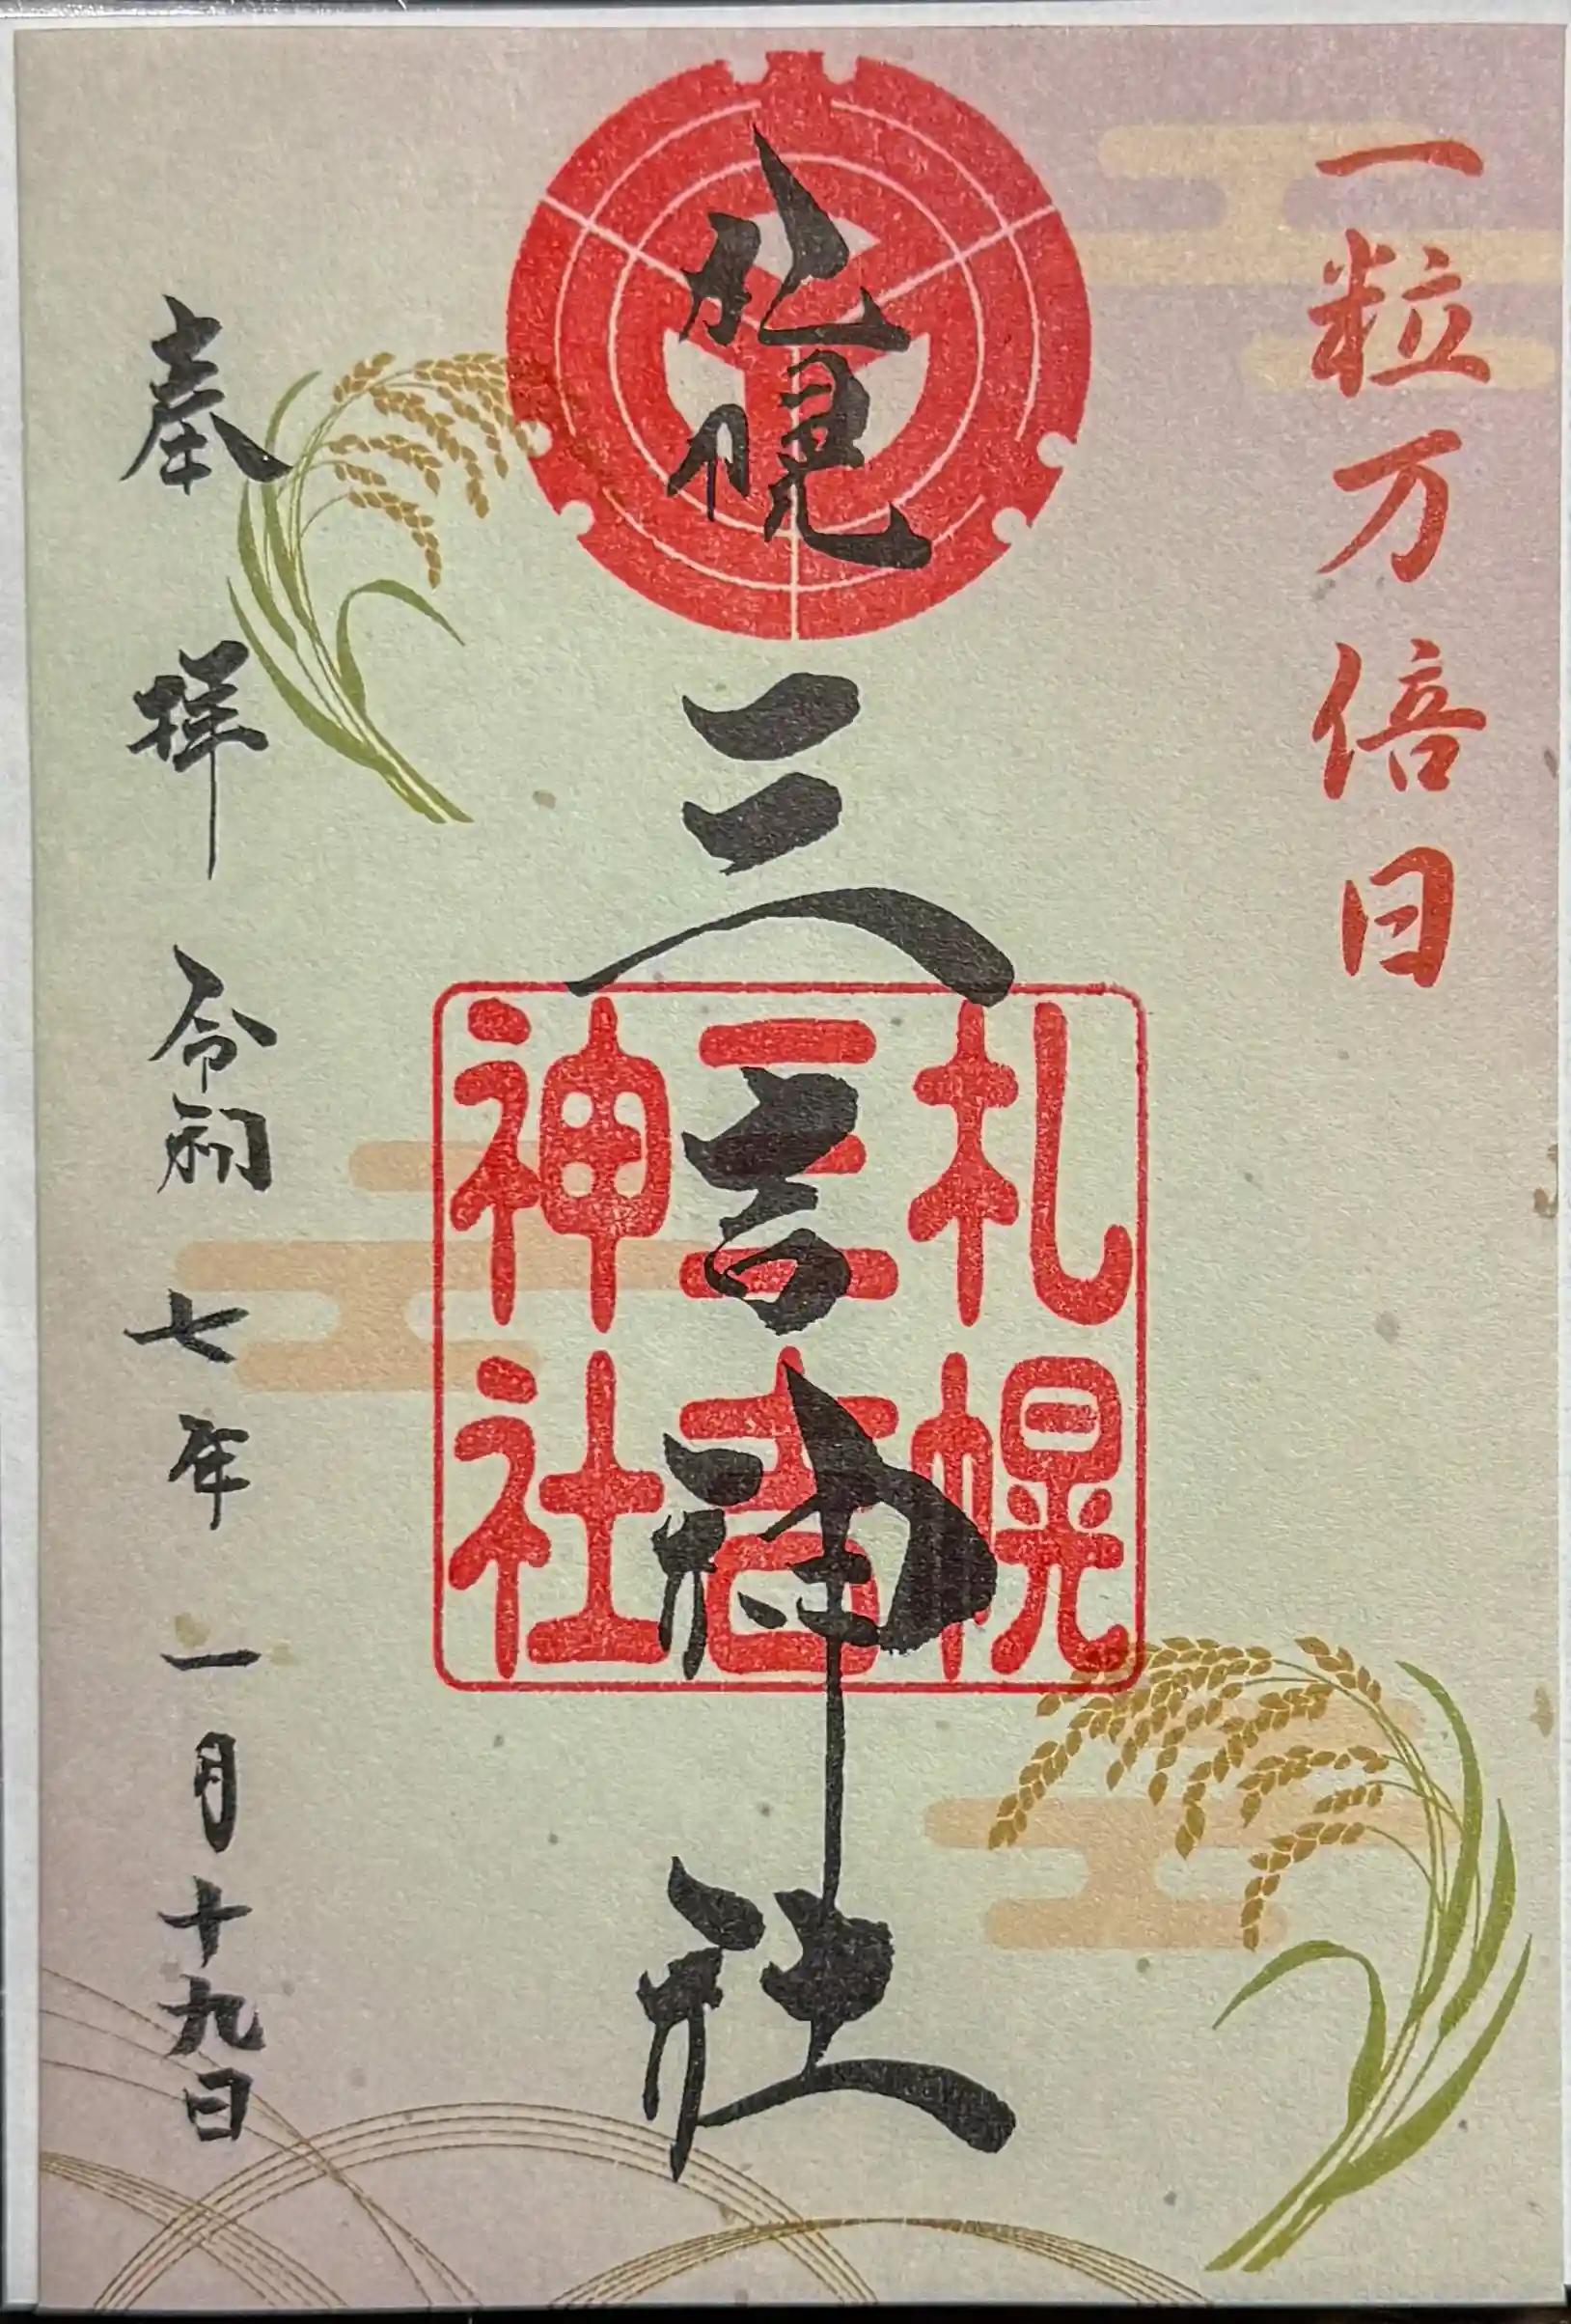 一粒万倍日
札幌三吉神社
札幌
三吉
神社
奉拝 令和七年一月十九日